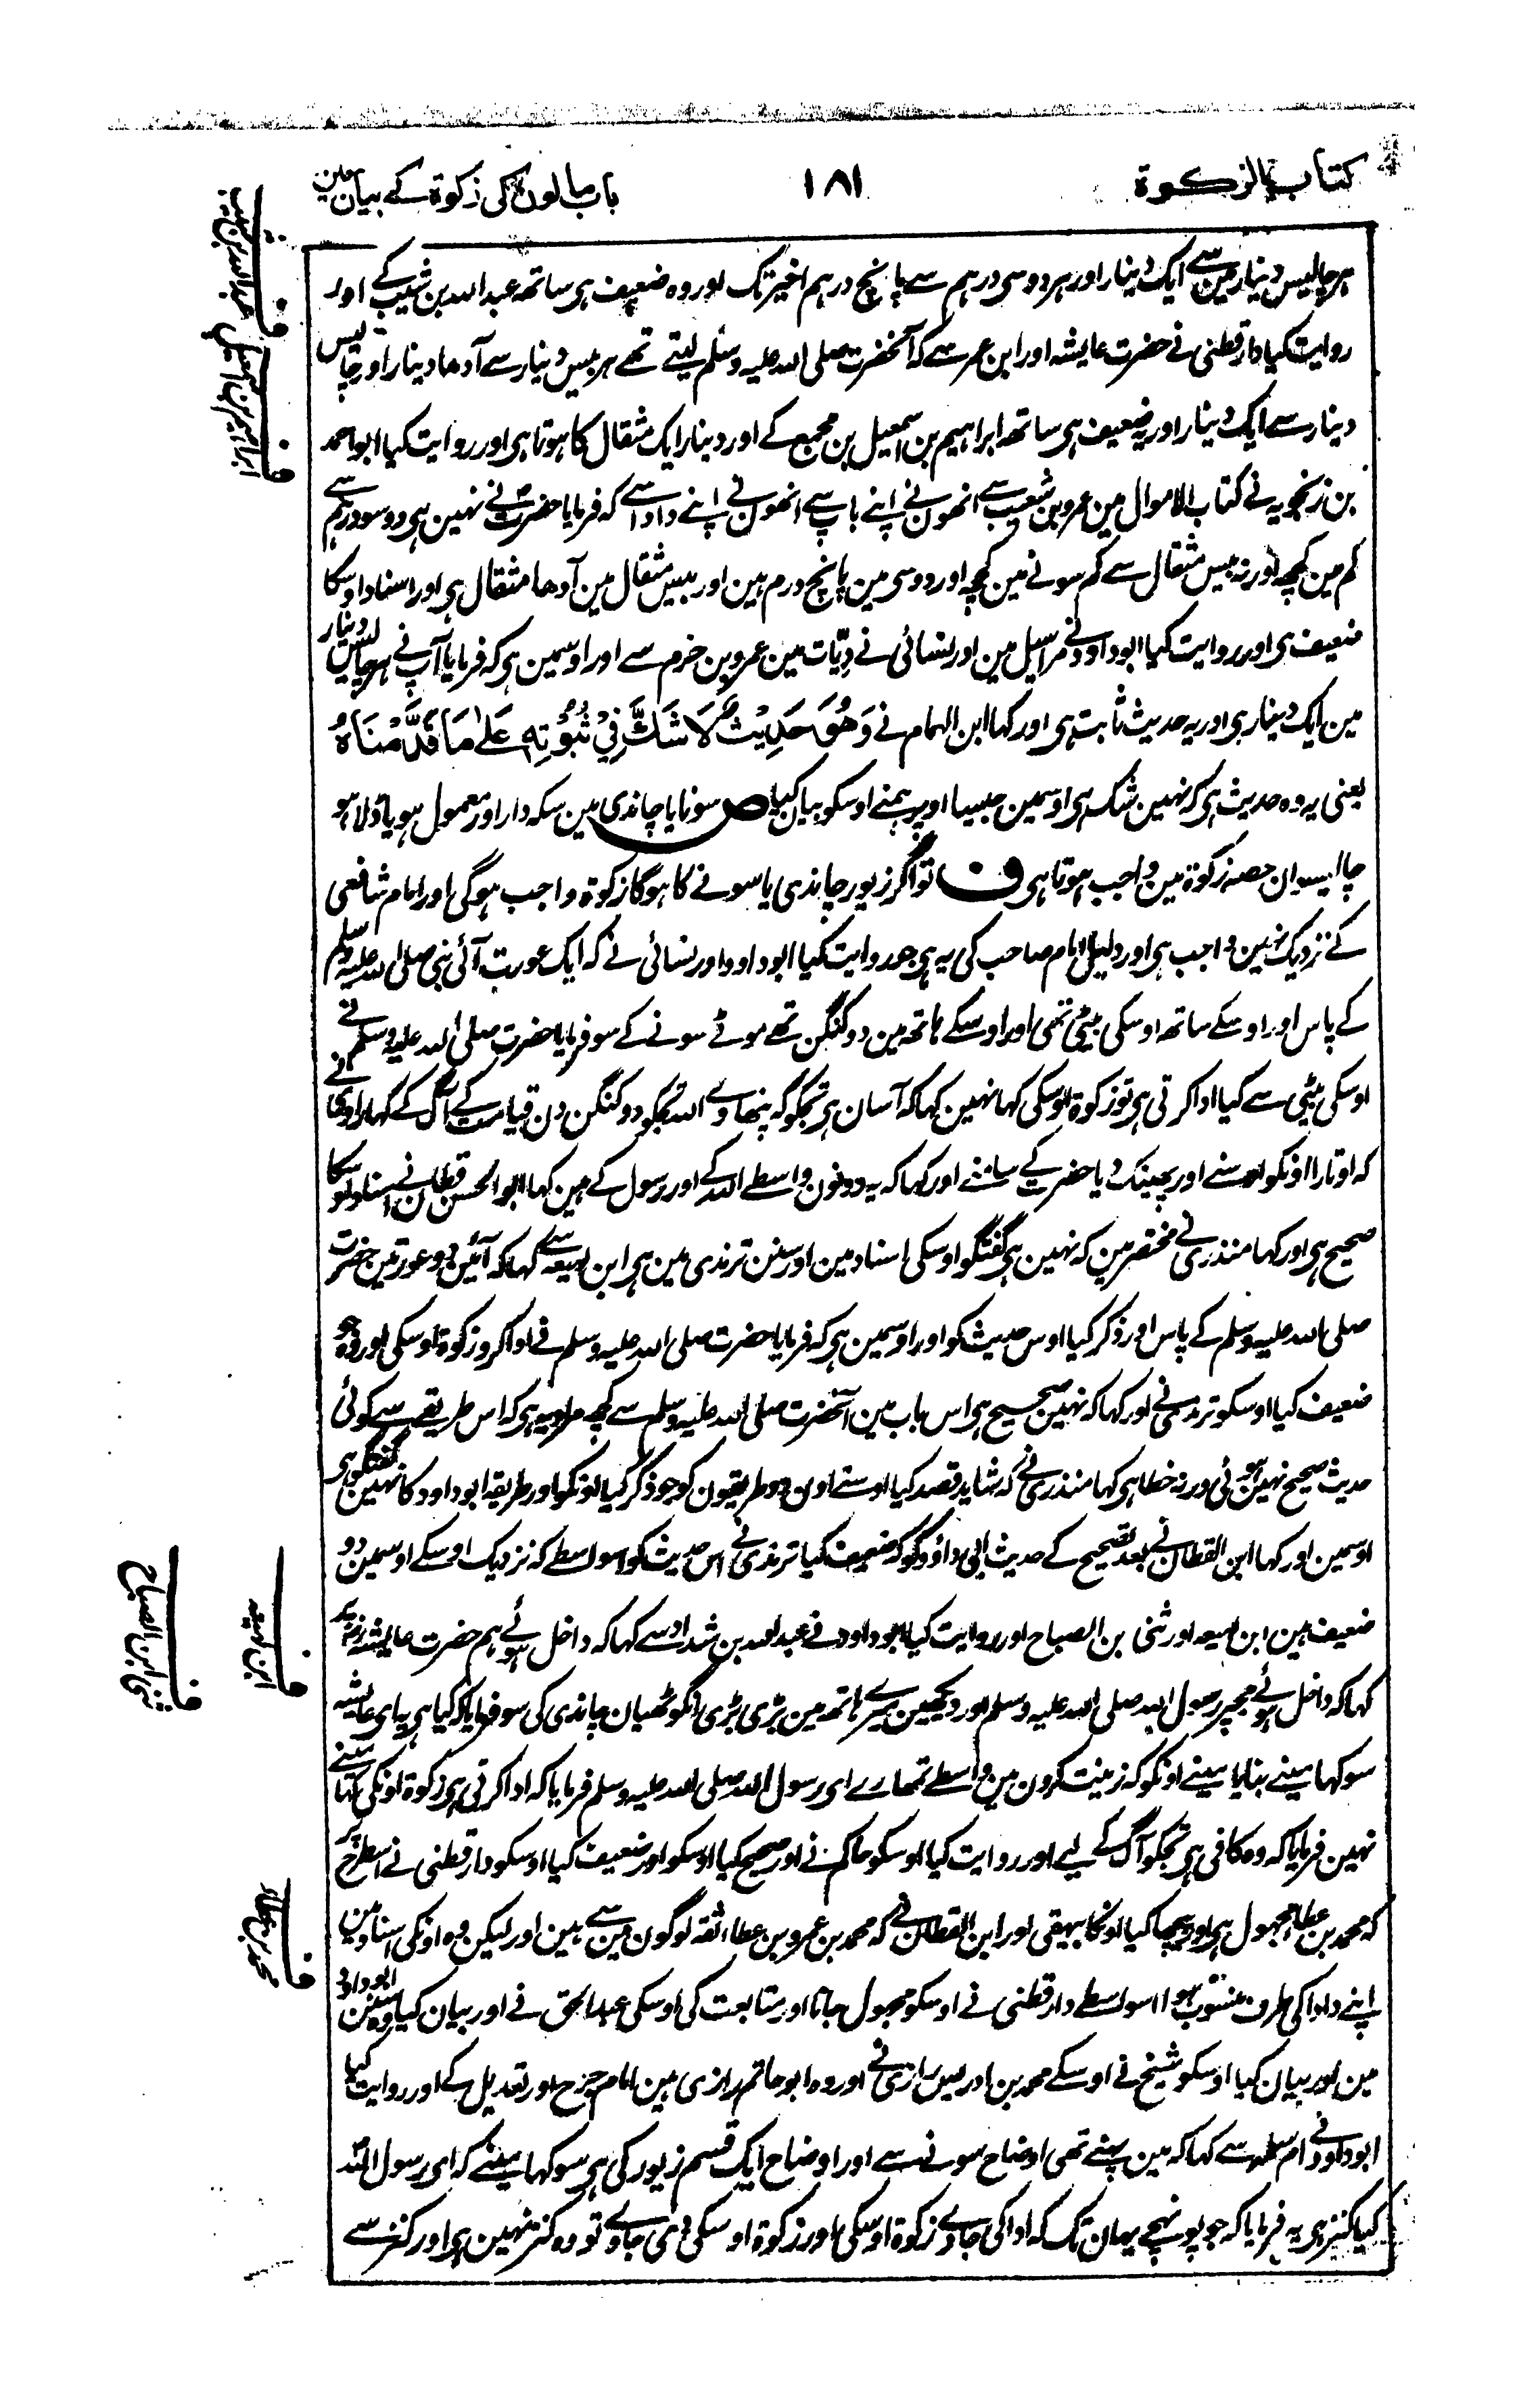 کتاب الزکوة
۱۸۱
باب مالون کی زکوة کے بیان مین
ہر چالیس دینار مین سے ایک دینار اور ہر دو سی درہم سے پانچ درہم اخیر تک اور وہ ضعیف ہی ساتھ عبد اللہ بن شبیب کے اور
روایت کیا دارقطنی نے حضرت عایشہ اور ابن عمر سے کہ آنحضرت صلی اللہ علیہ وسلم لیتے تھے ہر بیس دینار سے آدھا دینار اور چالیس
دینار سے ایک دینار اور یہ ضعیف ہی ساتھ ابراہیم بن اسمعیل بن مجمع کے اور دینار ایک مثقال کا ہوتا ہی اور روایت کیا ابو احمد
بن زنجویہ نے کتاب الاموال مین عمرو بن شعیب سے انھون نے اپنے باپ سے انھون نے اپنے دادا سے کہ فرمایا حضرت نے نہین ہی دو سو درہم سے
کم مین کچھ اور نہ بیس مثقال سے کم سونے مین کچھ اور دو سی مین پانچ درم ہین اور بیس مثقال مین آدھا مثقال ہی اور اسناد اوسکا
ضعیف ہی اور روایت کیا ابو داود نے مراسیل مین اور نسائی نے دِیّات مین عمرو بن حزم سے اور اوسمین ہی کہ فرمایا آپ نے ہر چالیس دینار
مین ایک دینار ہی اور یہ حدیث ثابت ہی اور کہا ابن الہمام نے وَهُوَ حَدِيْثٌ لَا شَكَّ فِيْ ثُبُوْتِهٖ عَلٰی مَا قَدَّمْنَاهُ
یعنی یہ وہ حدیث ہی کہ نہین شک ہی اوسمین جیسا اوپر ہمنے اوسکو بیان کیا ص سونا یا چاندی مین سکہ دار اور معمول ہو یا ڈلا ہو
چالیسوان حصہ زکوة مین واجب ہوتا ہی ف تو اگر زیور چاندی یا سونے کا ہوگا زکوة واجب ہوگی اور امام شافعی
کے نزدیک نہین واجب ہی اور دلیل امام صاحب کی یہ ہی جو روایت کیا ابو داود اور نسائی نے کہ ایک عورت آئی نبی صلی اللہ علیہ وسلم
کے پاس اور اوسکے ساتھ اوسکی بیٹی تھی اور اوسکے ہاتھ مین دو کنگن تھے موٹے سونے کے سو فرمایا حضرت صلی اللہ علیہ وسلم نے
اوسکی بیٹی سے کیا ادا کرتی ہی تو زکوة اوسکی کہا نہین کہا کہ آسان ہی تجکو کہ پنھاوے اللہ تجکو دو کنگن دن قیامت کے آگ کے کہا راوی نے
کہ اوتارا اونکو اوسنے اور پھینک دیا حضرت کے سامنے اور کہا کہ یہ دونون واسطے اللہ کے اور رسول کے ہین کہا ابو الحسن قطان نے اسناد اوسکا
صحیح ہی اور کہا منذری نے مختصر مین کہ نہین ہی گفتگو اوسکی اسناد مین اور سنن ترمذی مین ہی ابن لہیعہ سے کہا کہ آئین دو عورتین حضرت
صلی اللہ علیہ وسلم کے پاس اور ذکر کیا اوس حدیث کو اور اوسمین ہی کہ فرمایا حضرت صلی اللہ علیہ وسلم نے ادا کرو زکوة اوسکی اور
ضعیف کیا اوسکو ترمذی نے اور کہا کہ نہین صحیح ہی اس باب مین آنحضرت صلی اللہ علیہ وسلم سے کچھ مراد یہ ہی کہ اس طریقے سے کوئی
حدیث صحیح نہین ہوئی ورنہ خطا ہی کہا منذری نے کہ شاید قصد کیا اوسنے اون دو طریقیون کو جو ذکر کیا اونکو اور طریقہ ابو داود کا نہین گفتگو ہی
اوسمین اور کہا ابن القطان نے بعد تصحیح کے حدیث ابی داؤد کو کہ ضعیف کیا ترمذی نے اس حدیث کو اسواسطے کہ نزدیک اوسکے اوسمین دو
ضعیف ہین ابن لہیعہ اور مثنی بن الصباح اور روایت کیا ابو داود نے عبد اللہ بن شداد سے کہا کہ داخل ہوئے ہم حضرت عایشہ پر
کہا کہ داخل ہوئے مجھپر رسول اللہ صلی اللہ علیہ وسلم اور دیکھین میرے ہاتھ مین بڑی بڑی انگوٹھیان چاندی کی سو فرمایا کہ کیا ہی یہ ای عایشہ
سو کہا مینے بنایا مینے اونکو کہ زینت کرون مین واسطے تمھارے ای رسول اللہ صلی اللہ علیہ وسلم فرمایا کہ ادا کرتی ہی زکوة اونکی کہا مینے
نہین فرمایا کہ وہ کافی ہی تجکو آگ کے لیے اور روایت کیا اوسکو حاکم نے اور صحیح کیا اوسکو اور ضعیف کیا اوسکو دارقطنی نے اسطرح پر
کہ محمد بن عطا مجہول ہی اور پیچھا کیا اونکا بیہقی اور ابن القطان نے کہ محمد بن عمرو بن عطا ثقہ لوگون مین سے ہین اور لیکن وہ اونکی اسناد مین
اپنے دادا کی طرف منسوب ہوا اسواسطے دارقطنی نے اوسکو مجہول جانا اور متابعت کی اوسکی عبد الحق نے اور بیان کیا وہ سنن ابو داؤد
مین اور بیان کیا اوسکو شیخ نے اوسکے محمد بن ادریس رازی نے اور وہ ابو حاتم رازی ہین امام جرح اور تعدیل کے اور روایت کیا
ابو داود نے ام سلمہ سے کہا کہ مین پہنے تھی اوضاح سونے سے اور اوضاح ایک قسم زیور کی ہی سو کہا مینے کہ ای رسول اللہ
کیا کنز ہی یہ فرمایا کہ جو پونہچے یہان تک کہ ادا کی جاوے زکوة اوسکی اور زکوة اوسکی دی جاوے تو وہ کنز نہین ہی اور کنز سے
ف عبد اللہ بن شبیب
ف ابراہیم بن اسمعیل
ف ابن لہیعہ
ف مثنی بن الصباح
ف محمد بن عطا